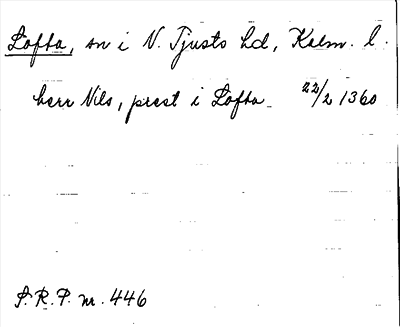 Lofta, sn i N. Tjusts hd, Kalm. l.
herr Nils, prest i Lofta 22/2 1360
S.R.P. nr. 446